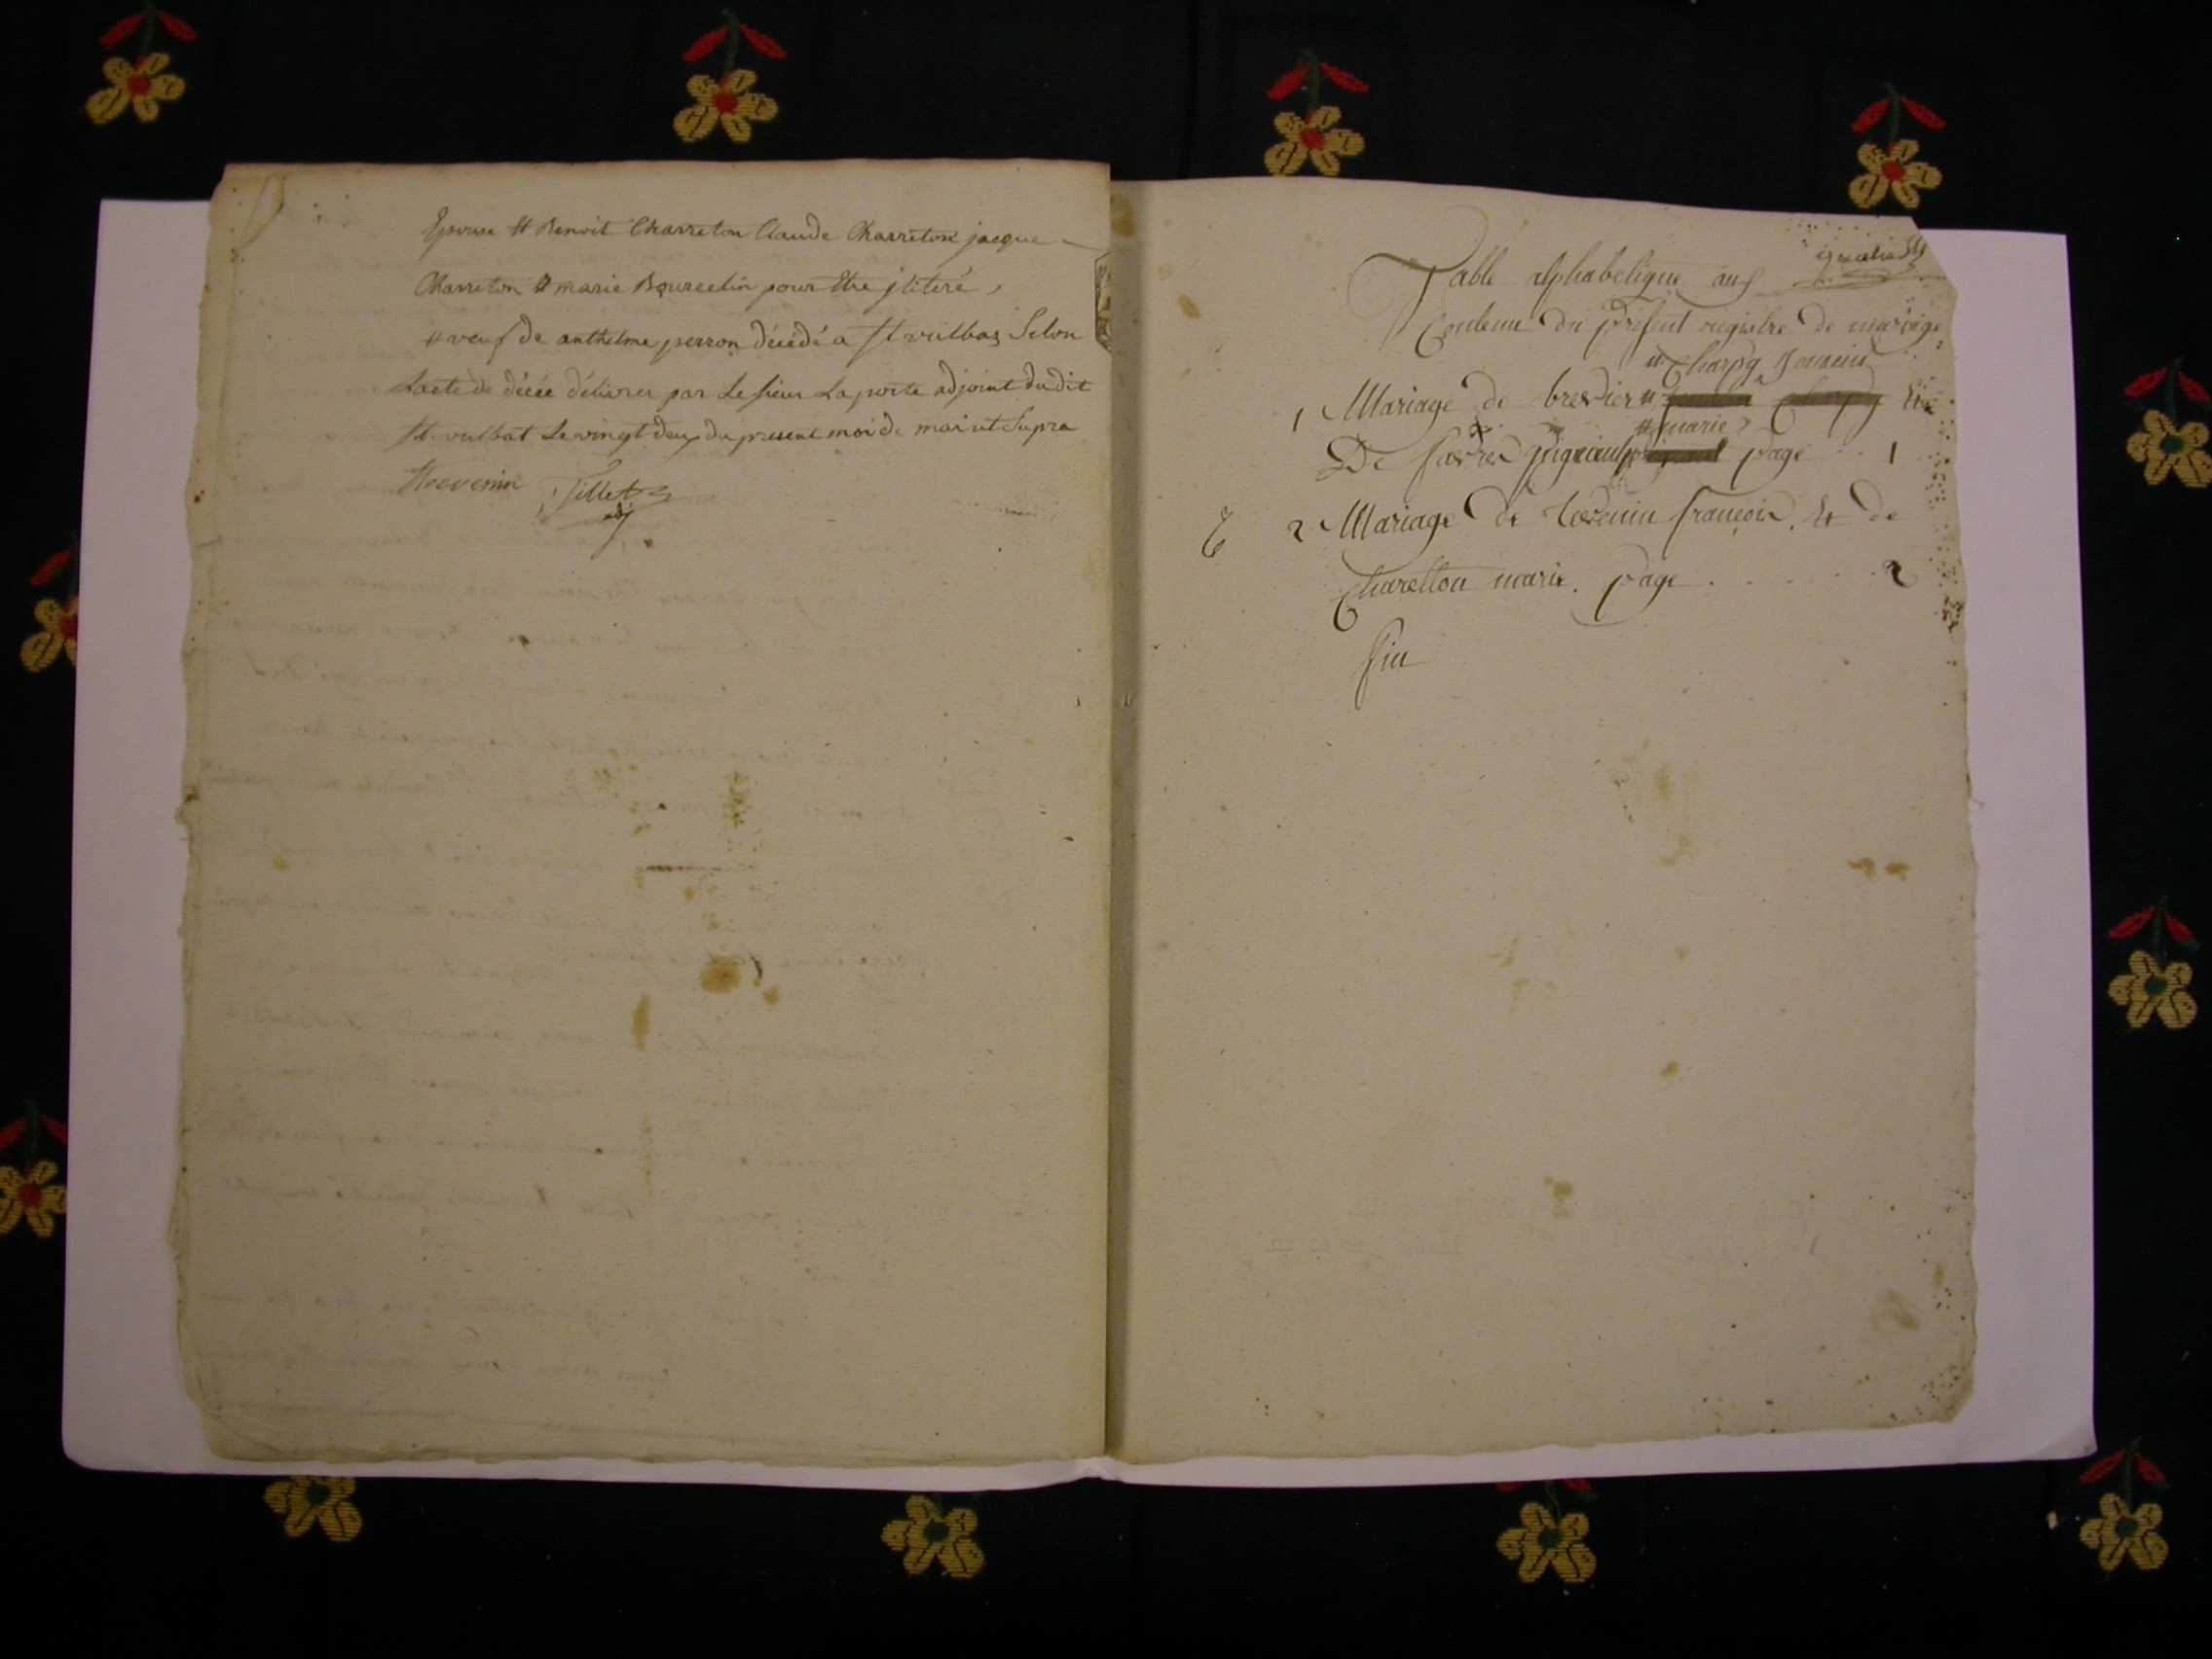 Epouse # Benoit Charreton Claude Charreton jacque
Charreton # marie Bourcelin pour Etre jlitéré,
# veuf de anthelme perron décédé a St vulbas Selon
Lacte de décée délivrer par Le sieur Laporte adjoint dudit
St. vulbat Le vingt deux du present moi de mai ut Supra
Thevenin Tillet
adj
quatre
Table alphabetique aux
Contenu du présent registre de mariage
# Charpy
1 Mariage de brevier # Et
# marie
De favres page 1
2 Mariage de françois Et de
Charetton marie. page 2
fin